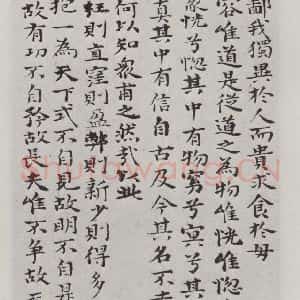 鄙我獨異於人而貴求食於母
容唯道是從道之為物唯恍唯惚
恍兮惚其中有物窈兮冥兮其
真其中有信自古及今其名不去
何以知眾甫之然哉以此
枉則直窪則盈弊則新少則得多
抱一為天下式不自見故明不自是
故有功不自矜故長夫唯不爭故天
Shufawang.CN